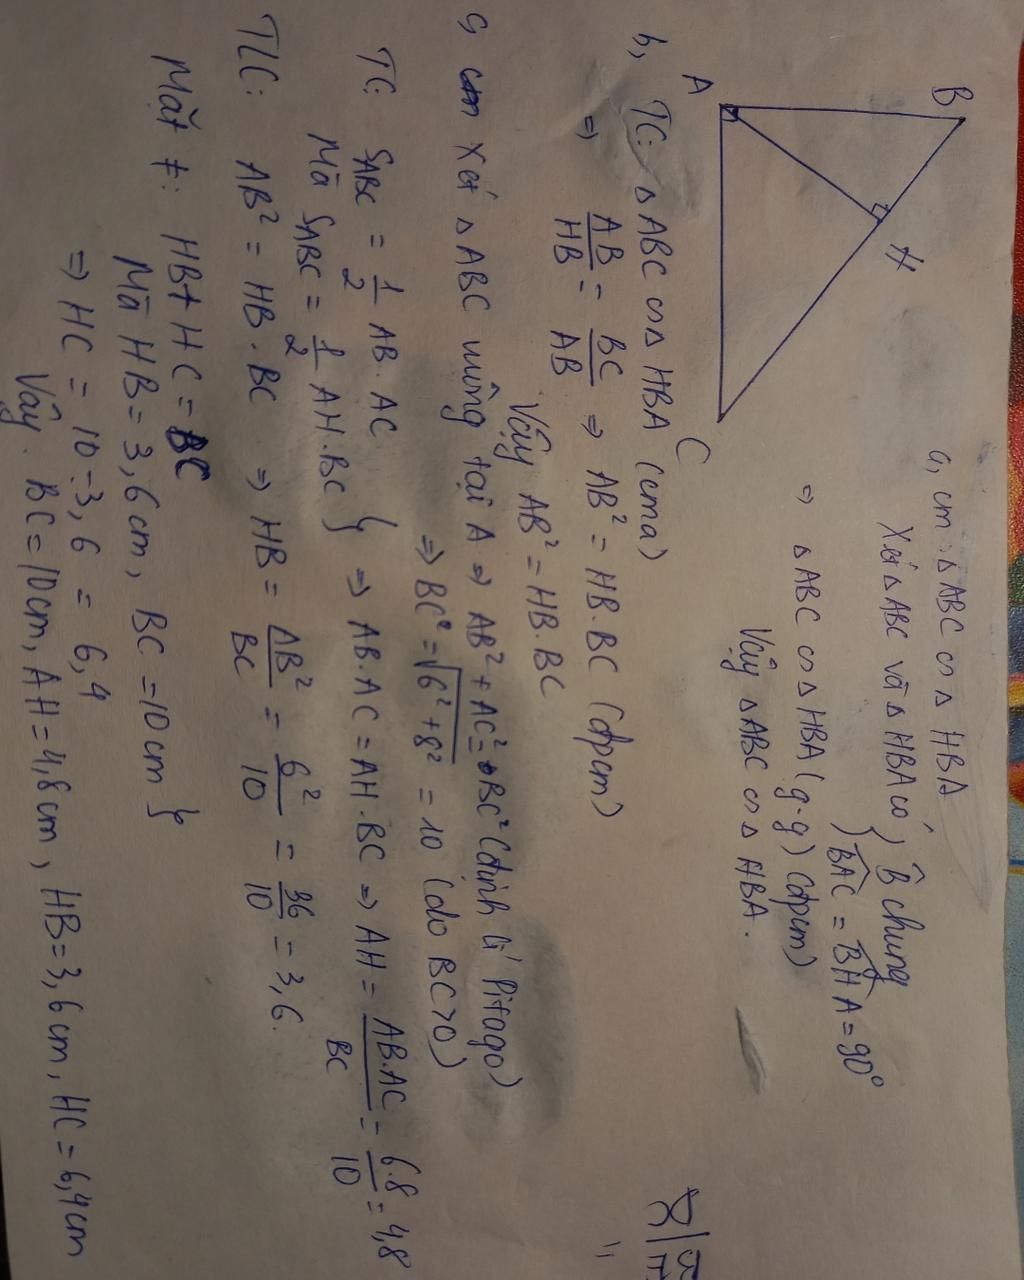 B
A
H
C
a, cm: △ABC ∽ △HBA
Xét △ABC và △HBA có { B̂ chung
BAC = BHA = 90°
⇒ △ABC ∽ △HBA (g.g) (đpcm)
Vậy △ABC ∽ △HBA.
b, TC: △ABC ∽ △HBA (cma)
⇒ AB/HB = BC/AB ⇒ AB² = HB.BC (đpcm)
Vậy AB² = HB.BC
c, Xét △ABC vuông tại A ⇒ AB² + AC² = BC² (định lí Pitago)
⇒ BC² = √6²+8² = 10 (do BC>0)
TC: SABC = 1/2 AB.AC
Mà SABC = 1/2 AH.BC } ⇒ AB.AC = AH.BC ⇒ AH = AB.AC/BC = 6.8/10 = 4,8
TLC: AB² = HB.BC ⇒ HB = AB²/BC = 6²/10 = 36/10 = 3,6.
Mặt ≠: HB + HC = BC
Mà HB = 3,6cm, BC = 10cm }
⇒ HC = 10 - 3,6 = 6,4
Vậy BC = 10cm, AH = 4,8cm, HB = 3,6cm, HC = 6,4cm